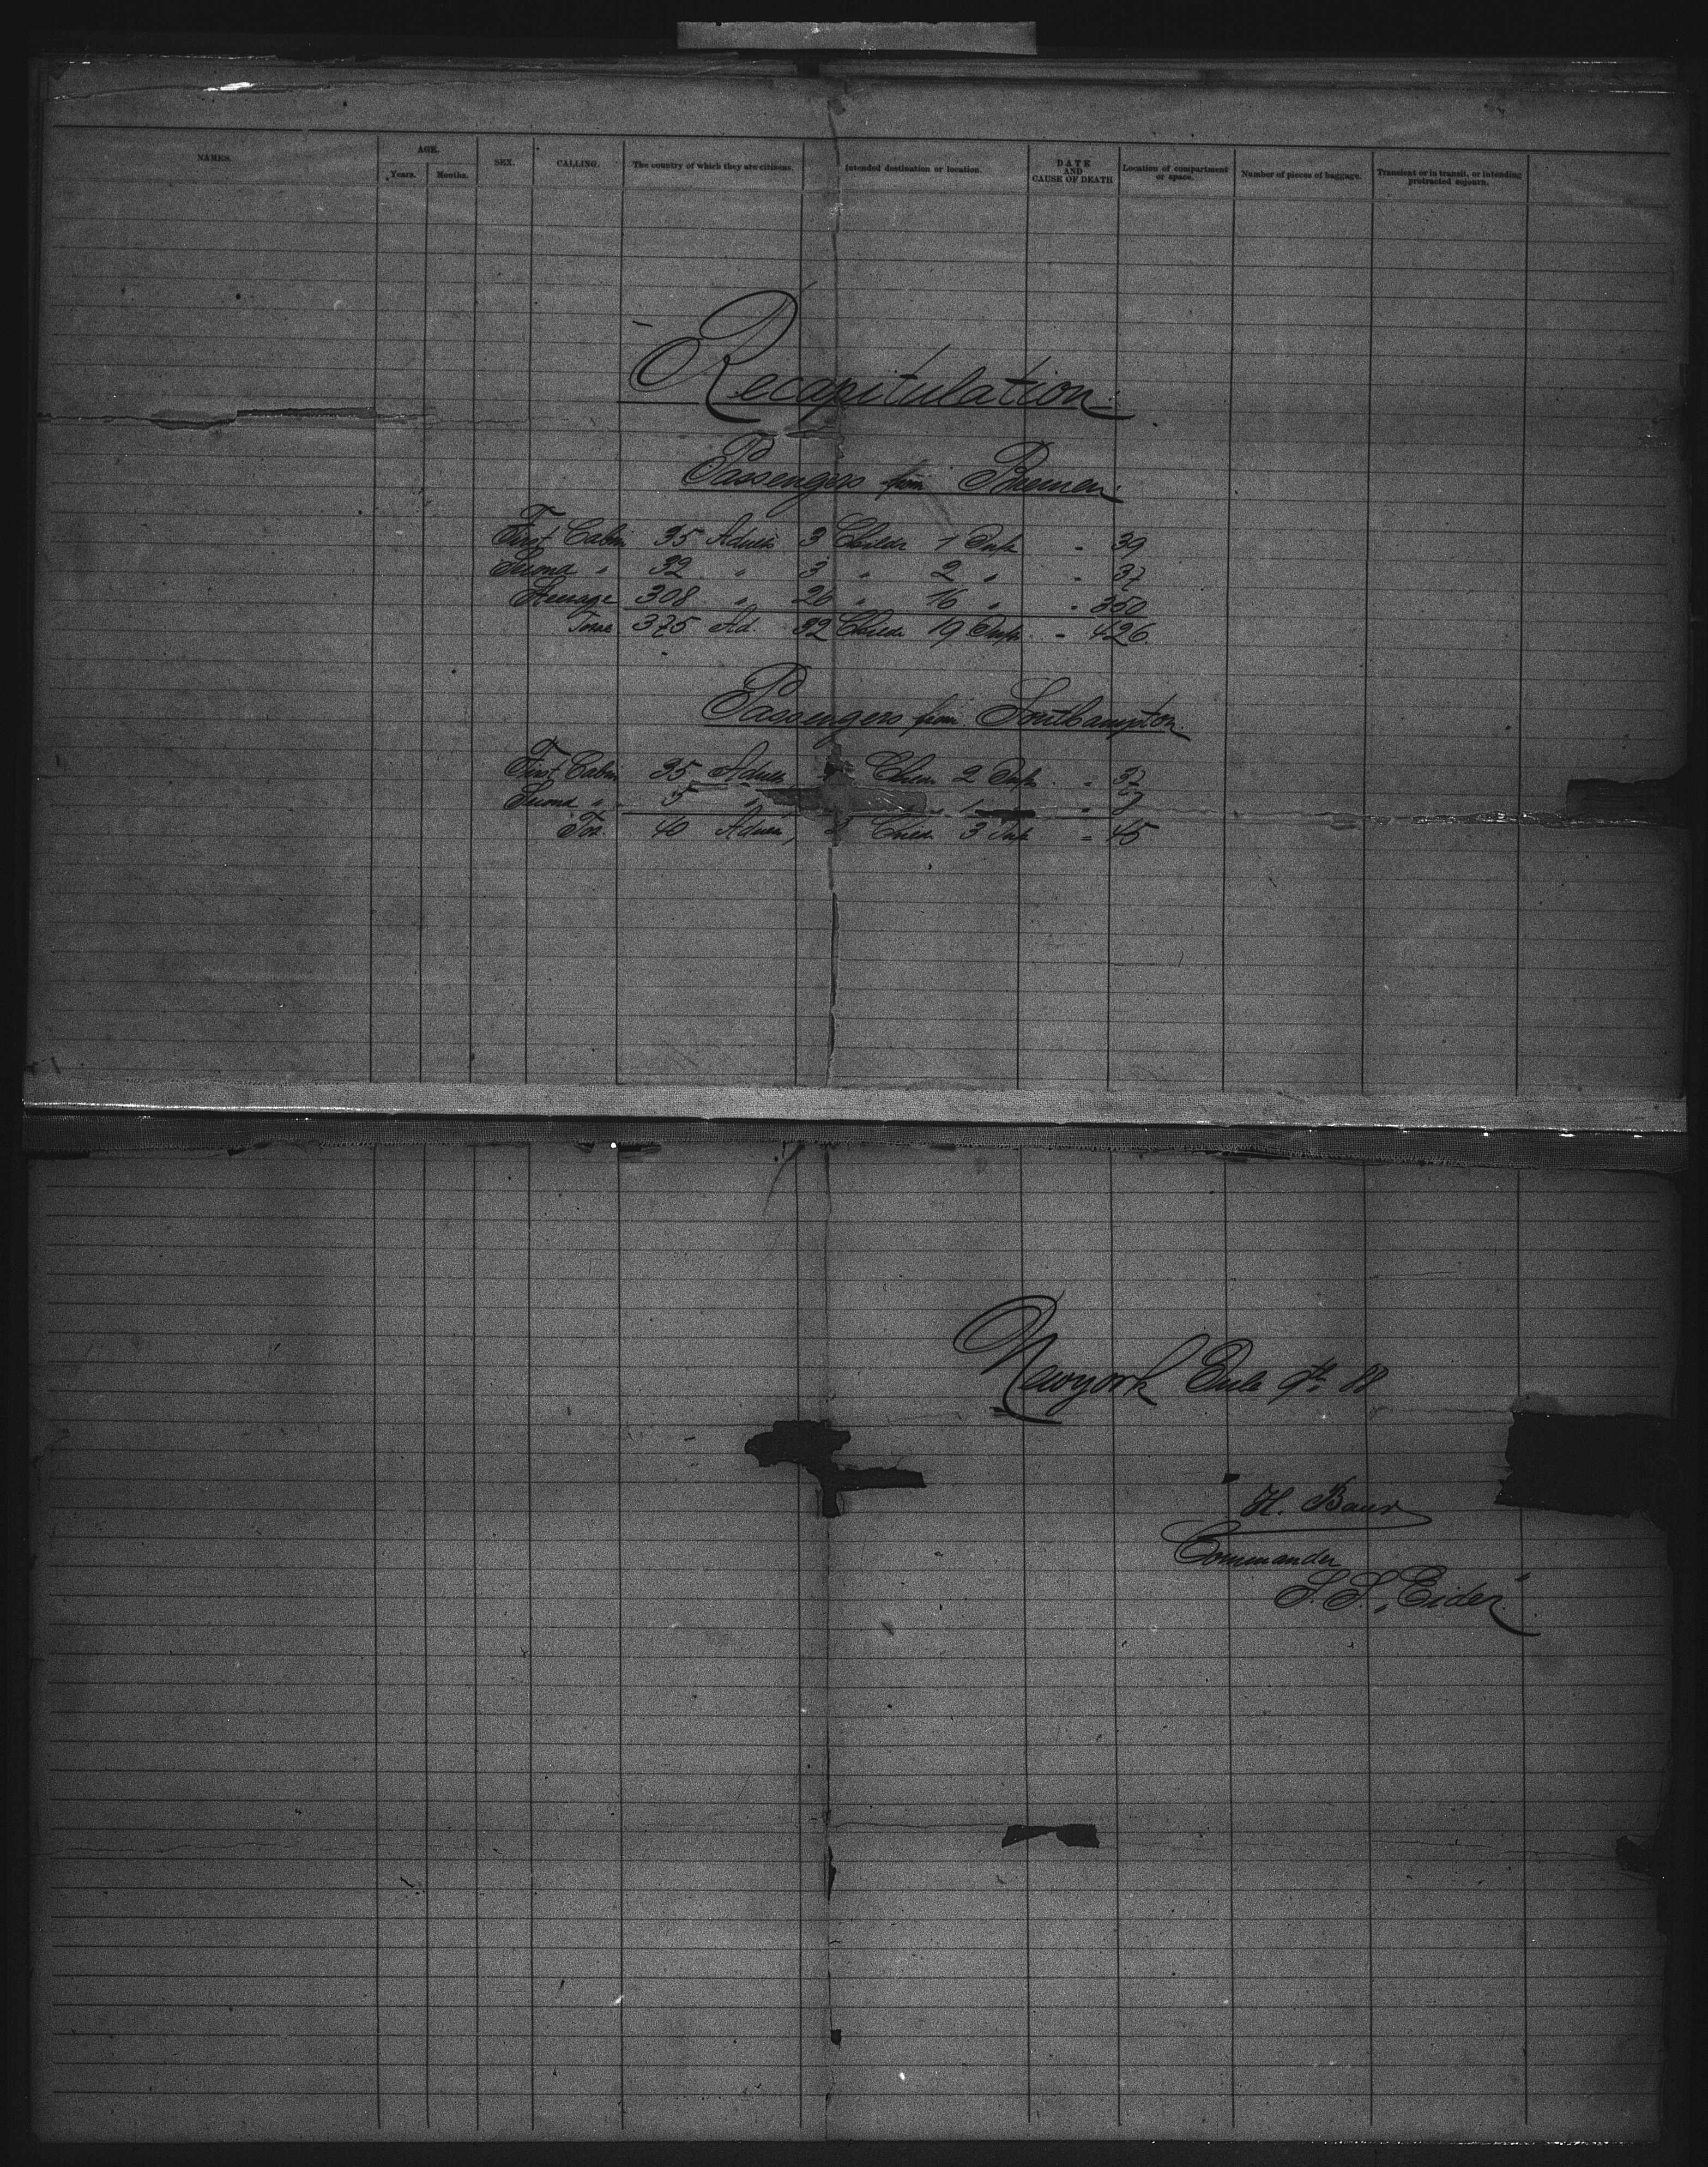 NAMES. AGE. SEX. CALLING. The country of which they are citizens. Intended destination or location. DATE AND CAUSE OF DEATH Location of compartment or space. Number of pieces of baggage. Transient or in transit, or intending protracted sojourn.
Years. Months.
Recapitulation.
Passengers from Bremen.
First Cabin 35 Adults 3 Childr 1 Inft - 39
Second " 32 " 3 " 2 " - 37
Steerage 308 " 26 " 16 " - 350
Total 375 Ad. 32 Childr. 19 Inft. - 426
Passengers from Southampton.
First Cabin 35 Adults Childr. 2 Inft. - 37
Second " 5 " " 1 - 8
Tot. 40 Adults, 2 Childr. 3 Inft - 45
Newyork 9th 88
H. Baur
Commander
S. S. „Eider"